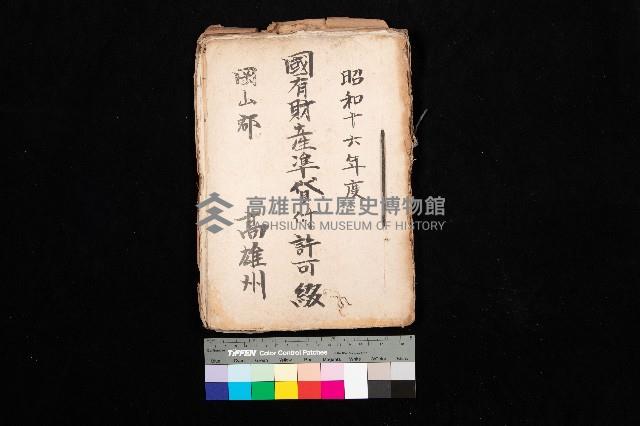 昭和十六年度
國有財產準貸付許可綴
岡山郡
高雄州
高雄市立歷史博物館
KAOHSIUNG MUSEUM OF HISTORY
TIFFEN Color Control Patches
Blue Cyan Green Yellow Red Magenta White 3/Color Black